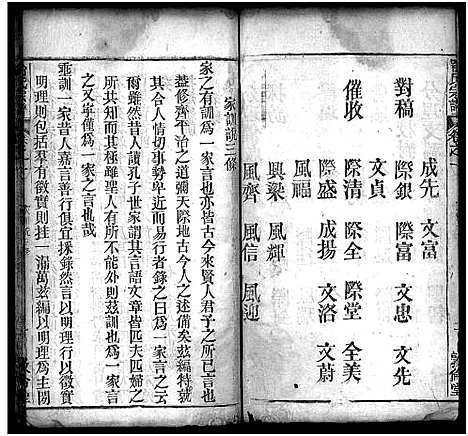 成先 文富
對稿 際銀 際富 文忠 文先
文貞
催收 際清 際全 際堂 全美
際盛 成揚 文洛 文蔚
風福
興梁 風輝
風齊 風信 風迎
家訓說三條
家之有訓為一家言也亦皆古今來賢人君子之所已言也
蓋修齊平治之道彌天際地古今人之述備矣茲編特就
其合人情切事勢卑近而易行者錄之曰為一家言之云
爾雖然昔人謂孔子世家謂其言語文章皆匹夫匹婦之
所共知而其極雖聖人有所不能外則茲訓也為一家言
之又寧僅為一家之言也哉
垂訓一家昔人嘉言善行俱宜採錄然言以明理行以徵實
明理則包括羣有徵實則挂一漏萬茲編以明理為主間